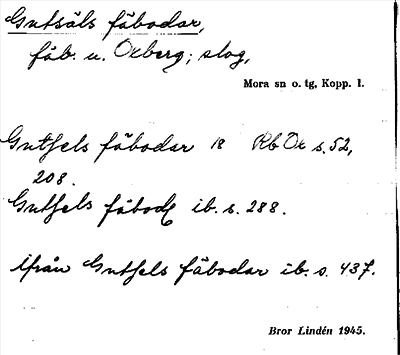 Gutsäls fäbodar,
fäb. u. Oxberg; slog,
Mora sn o. tg, Kopp. l.
Gutsels fäbodar 18 Rb Or s. 52,
208.
Gutsels fäbod ib. s. 288.
ifrån Gutsels fäbodar ib. s. 437.
Bror Lindén 1945.